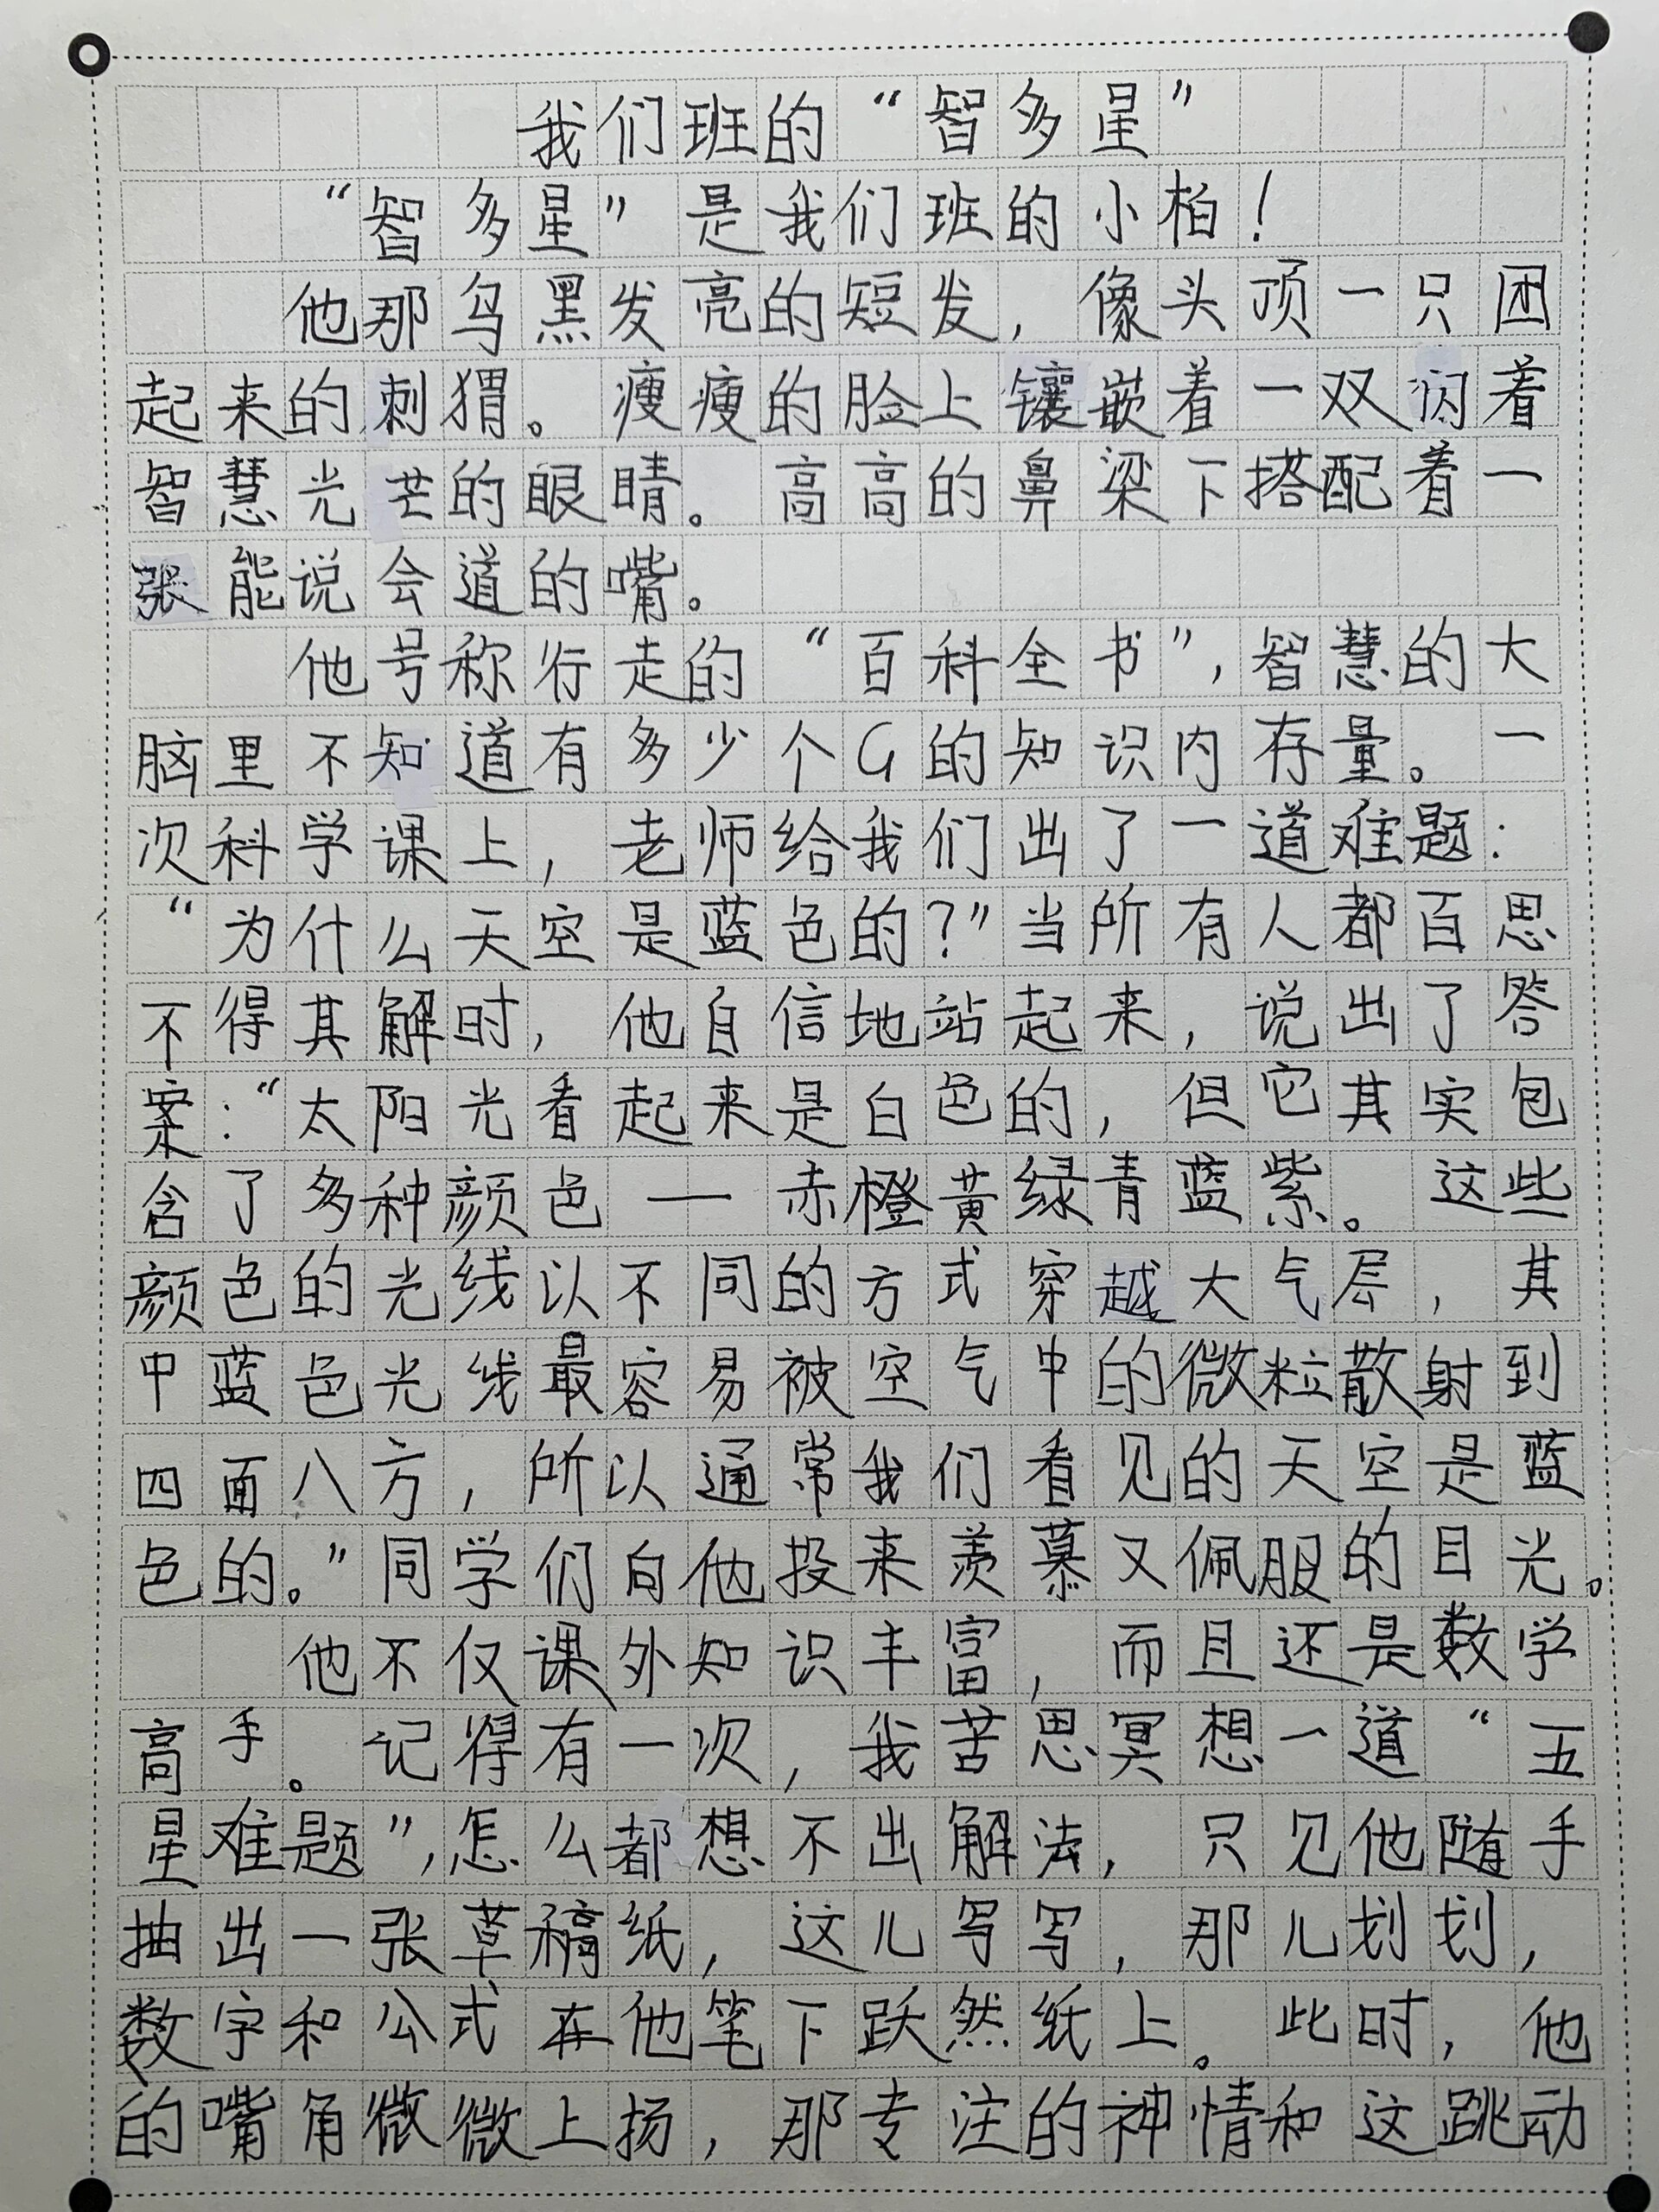 我们班的“智多星”
“智多星”是我们班的小柏！
他那乌黑发亮的短发，像头顶一只团
起来的刺猬。瘦瘦的脸上镶嵌着一双闪着
智慧光芒的眼睛。高高的鼻梁下搭配着一
张能说会道的嘴。
他号称行走的“百科全书”，智慧的大
脑里不知道有多少个G的知识内存量。一
次科学课上，老师给我们出了一道难题：
“为什么天空是蓝色的？”当所有人都百思
不得其解时，他自信地站起来，说出了答
案：“太阳光看起来是白色的，但它其实包
含了多种颜色——赤橙黄绿青蓝紫。这些
颜色的光线以不同的方式穿越大气层，其
中蓝色光线最容易被空气中的微粒散射到
四面八方，所以通常我们看见的天空是蓝
色的。”同学们向他投来羡慕又佩服的目光。
他不仅课外知识丰富，而且还是数学
高手。记得有一次，我苦思冥想一道“五
星难题”，怎么都想不出解法，只见他随手
抽出一张草稿纸，这儿写写，那儿划划，
数字和公式在他笔下跃然纸上。此时，他
的嘴角微微上扬，那专注的神情和这跳动